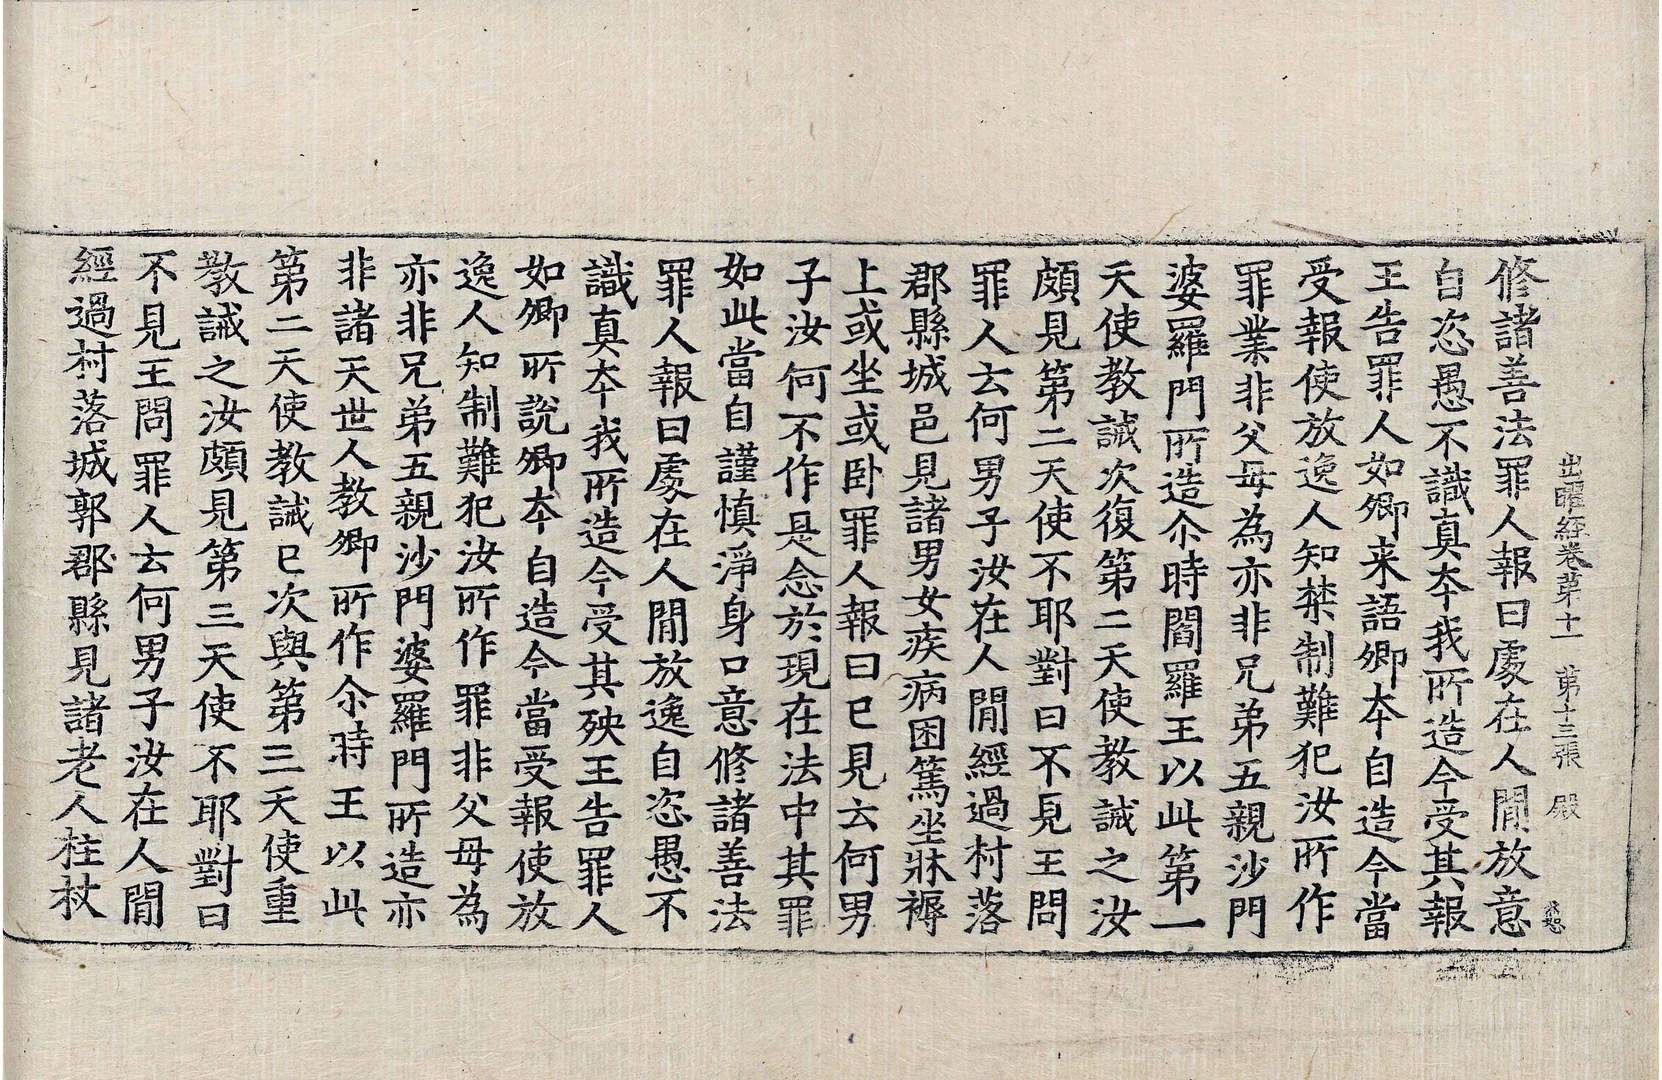 出曜經卷第十一 第十三張 殿
修諸善法罪人報曰處在人閒放意
自恣愚不識真夲我所造今受其報
王告罪人如卿来語卿夲自造今當
受報使放逸人知禁制難犯汝所作
罪業非父母為亦非兄弟五親沙門
婆羅門所造尒時閻羅王以此第一
天使教誡次復第二天使教誡之汝
頗見第二天使不耶對曰不見王問
罪人云何男子汝在人閒經過村落
郡縣城邑見諸男女疾病困篤坐牀褥
上或坐或卧罪人報曰已見云何男
子汝何不作是念於現在法中其罪
如此當自謹慎淨身口意修諸善法
罪人報曰處在人閒放逸自恣愚不
識真夲我所造今受其殃王告罪人
如卿所說卿夲自造今當受報使放
逸人知制難犯汝所作罪非父母為
亦非兄弟五親沙門婆羅門所造亦
非諸天世人教卿所作尒時王以此
第二天使教誡已次與第三天使重
教誡之汝頗見第三天使不耶對曰
不見王問罪人云何男子汝在人閒
經過村落城郭郡縣見諸老人柱杖